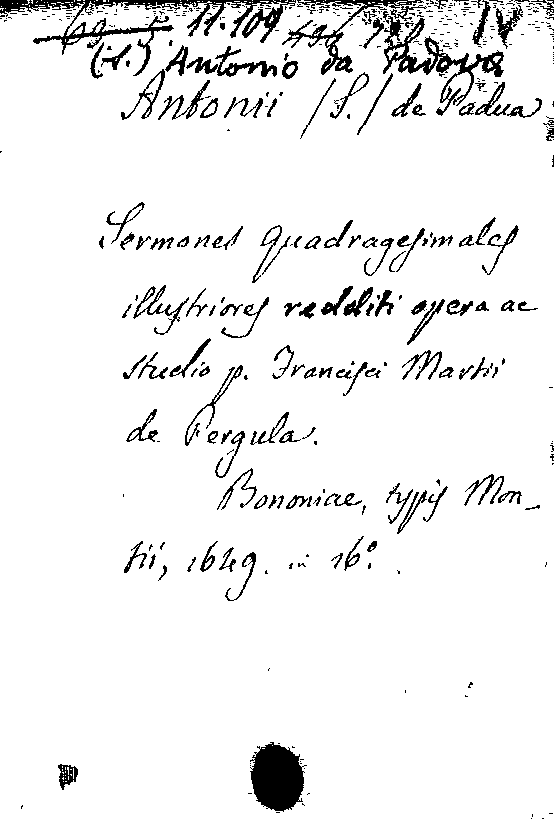 11.109 IV
(S.) Antonio da Padova
Antonii (S.) de Padua
Sermones quadragesimales
illustriores redditi opera ac
studio p. Francisci Martii
de Pergula.
Bononiae, typis Mon-
tii, 1649. in 16°.